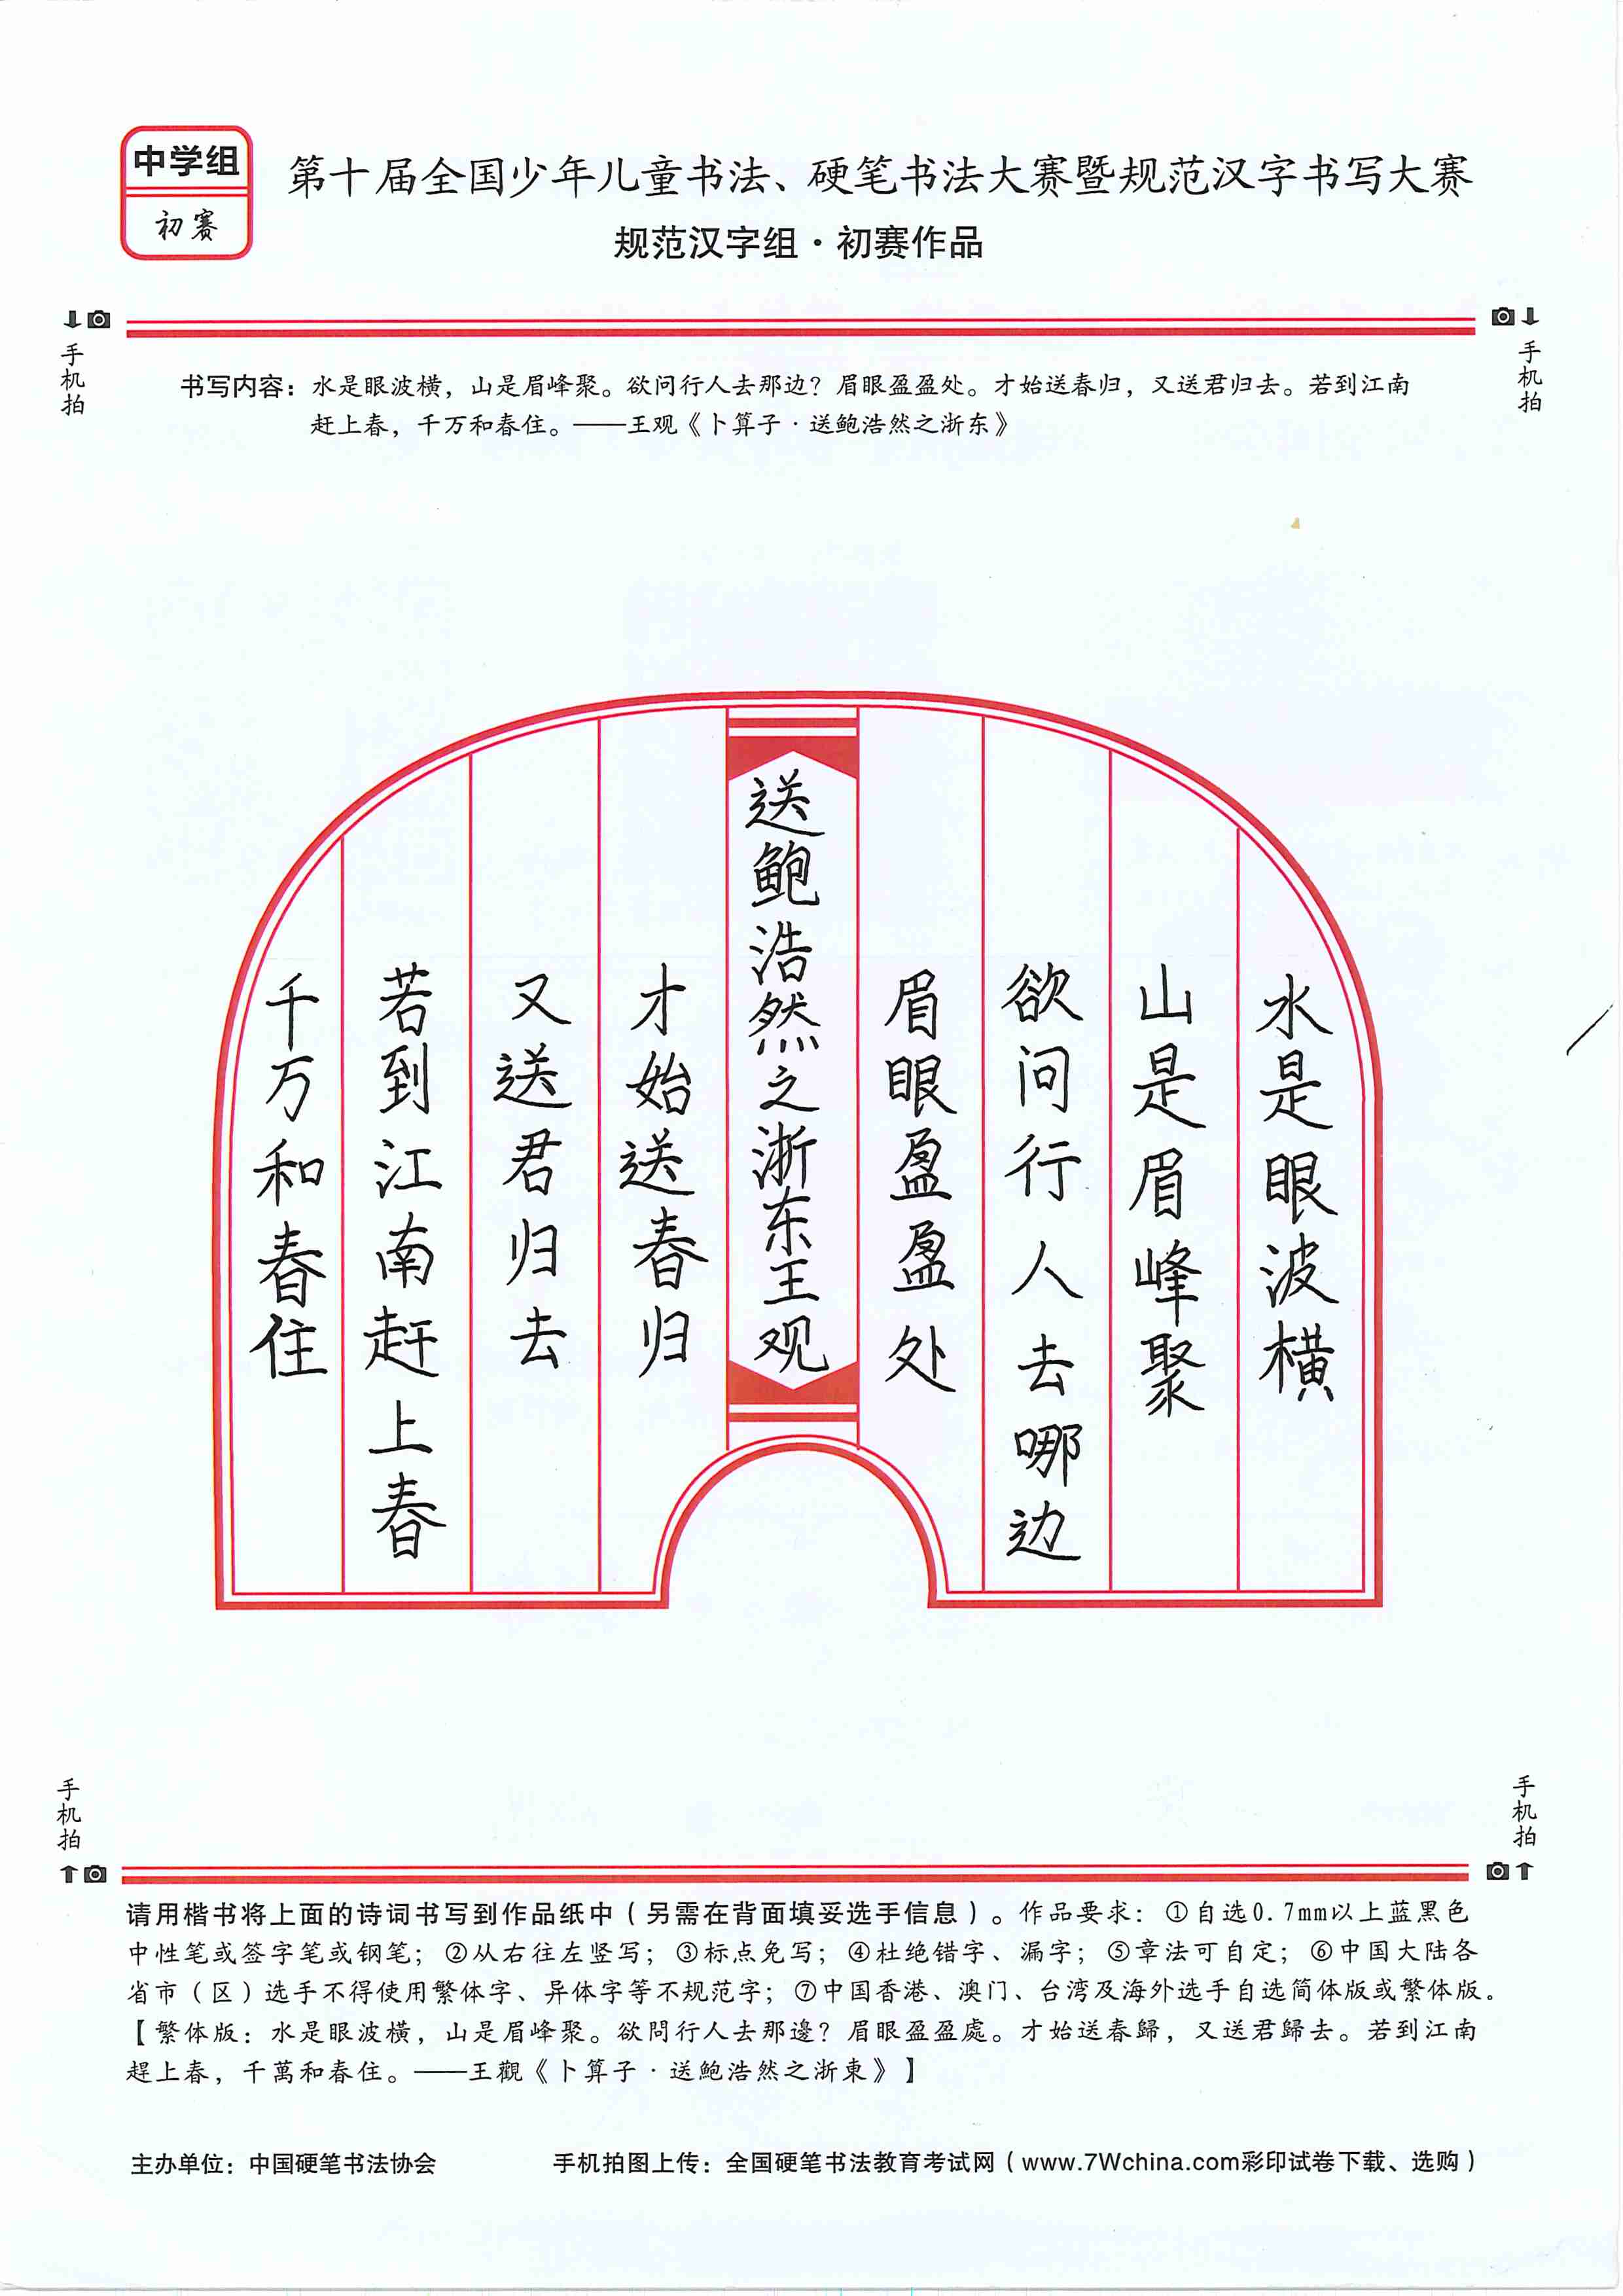 中学组
初赛
第十届全国少年儿童书法、硬笔书法大赛暨规范汉字书写大赛
规范汉字组·初赛作品
手机拍
手机拍
书写内容：水是眼波横，山是眉峰聚。欲问行人去那边？眉眼盈盈处。才始送春归，又送君归去。若到江南
赶上春，千万和春住。——王观《卜算子·送鲍浩然之浙东》
水是眼波横
山是眉峰聚
欲问行人去哪边
眉眼盈盈处
送鲍浩然之浙东王观
才始送春归
又送君归去
若到江南赶上春
千万和春住
手机拍
手机拍
请用楷书将上面的诗词书写到作品纸中（另需在背面填妥选手信息）。作品要求：①自选0.7mm以上蓝黑色
中性笔或签字笔或钢笔；②从右往左竖写；③标点免写；④杜绝错字、漏字；⑤章法可自定；⑥中国大陆各
省市（区）选手不得使用繁体字、异体字等不规范字；⑦中国香港、澳门、台湾及海外选手自选简体版或繁体版。
【繁体版：水是眼波橫，山是眉峰聚。欲問行人去那邊？眉眼盈盈處。才始送春歸，又送君歸去。若到江南
趕上春，千萬和春住。——王觀《卜算子·送鮑浩然之浙東》】
主办单位：中国硬笔书法协会
手机拍图上传：全国硬笔书法教育考试网（www.7Wchina.com彩印试卷下载、选购）